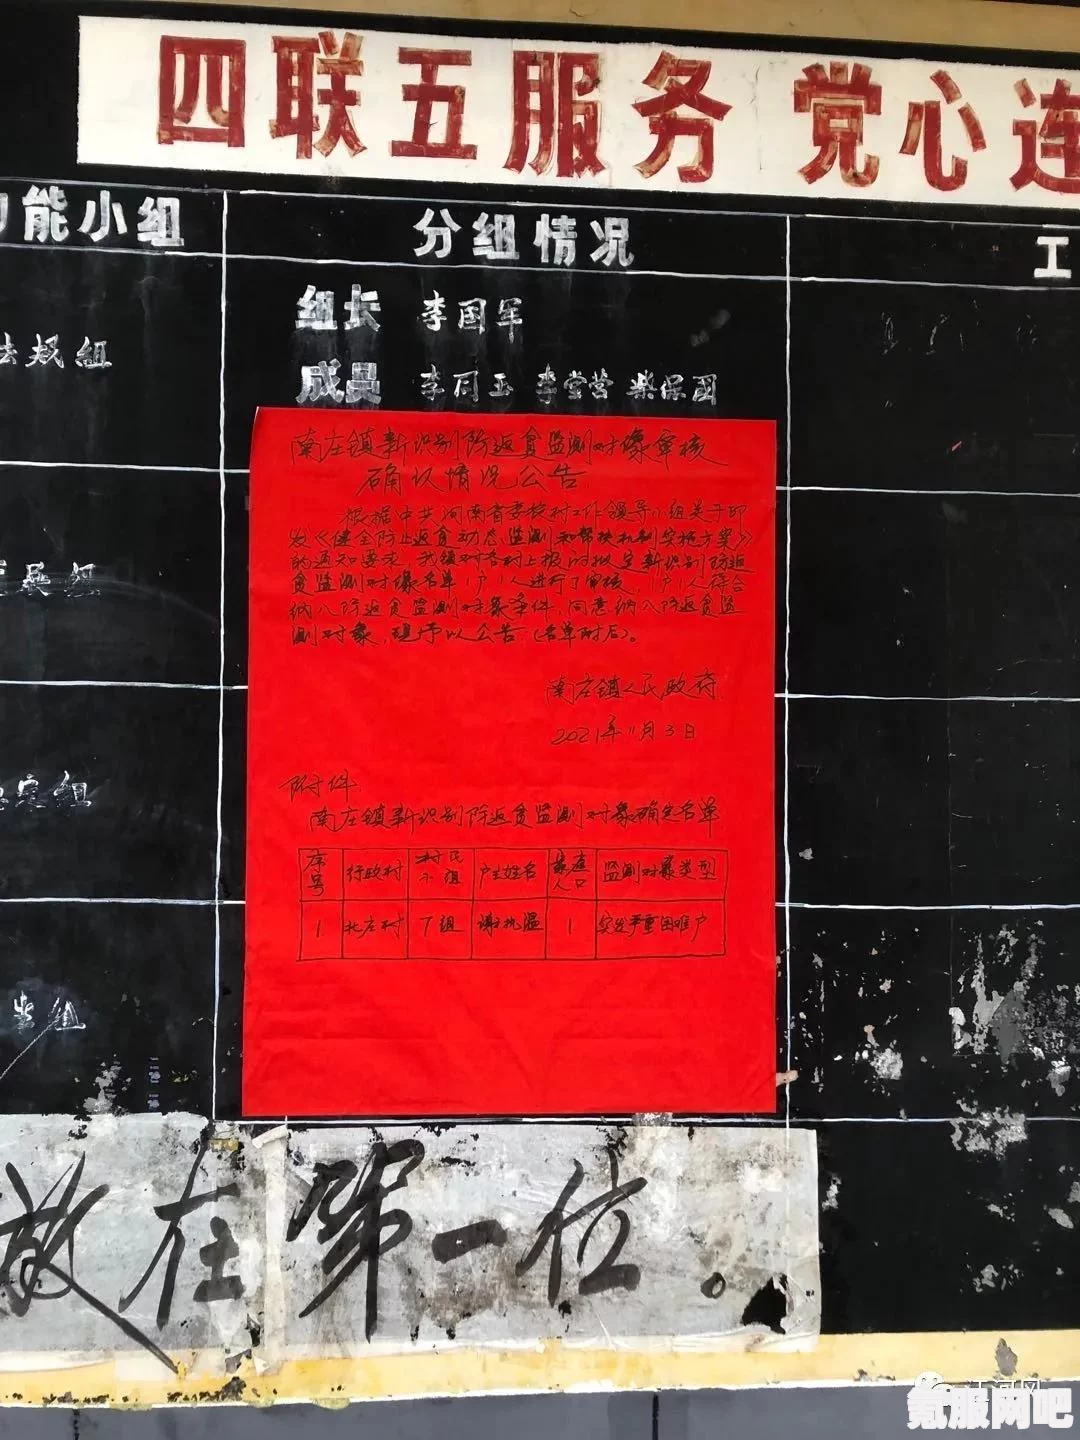 四联五服务 党心连
能小组 分组情况 工
组长 李国军
规组
成员 李同玉 李堂营 柴保国
南庄镇新识别防返贫监测对象审核
确认情况公告
根据中共河南省委农村工作领导小组关于印
发《健全防止返贫动态监测和帮扶机制实施方案》
的通知要求，我镇对各村上报的拟定新识别防返
贫监测对象名单1户1人进行了审核，1户1人符合
纳入防返贫监测对象条件，同意纳入防返贫监
测对象，现予以公告（名单附后）。
南庄镇人民政府
2021年11月3日
附件
南庄镇新识别防返贫监测对象确定名单
序号 行政村 村民小组 户主姓名 家庭人口 监测对象类型
1 北庄村 7组 谢执温 1 突发严重困难户
组
组
组
放在第一位。
氪服网吧